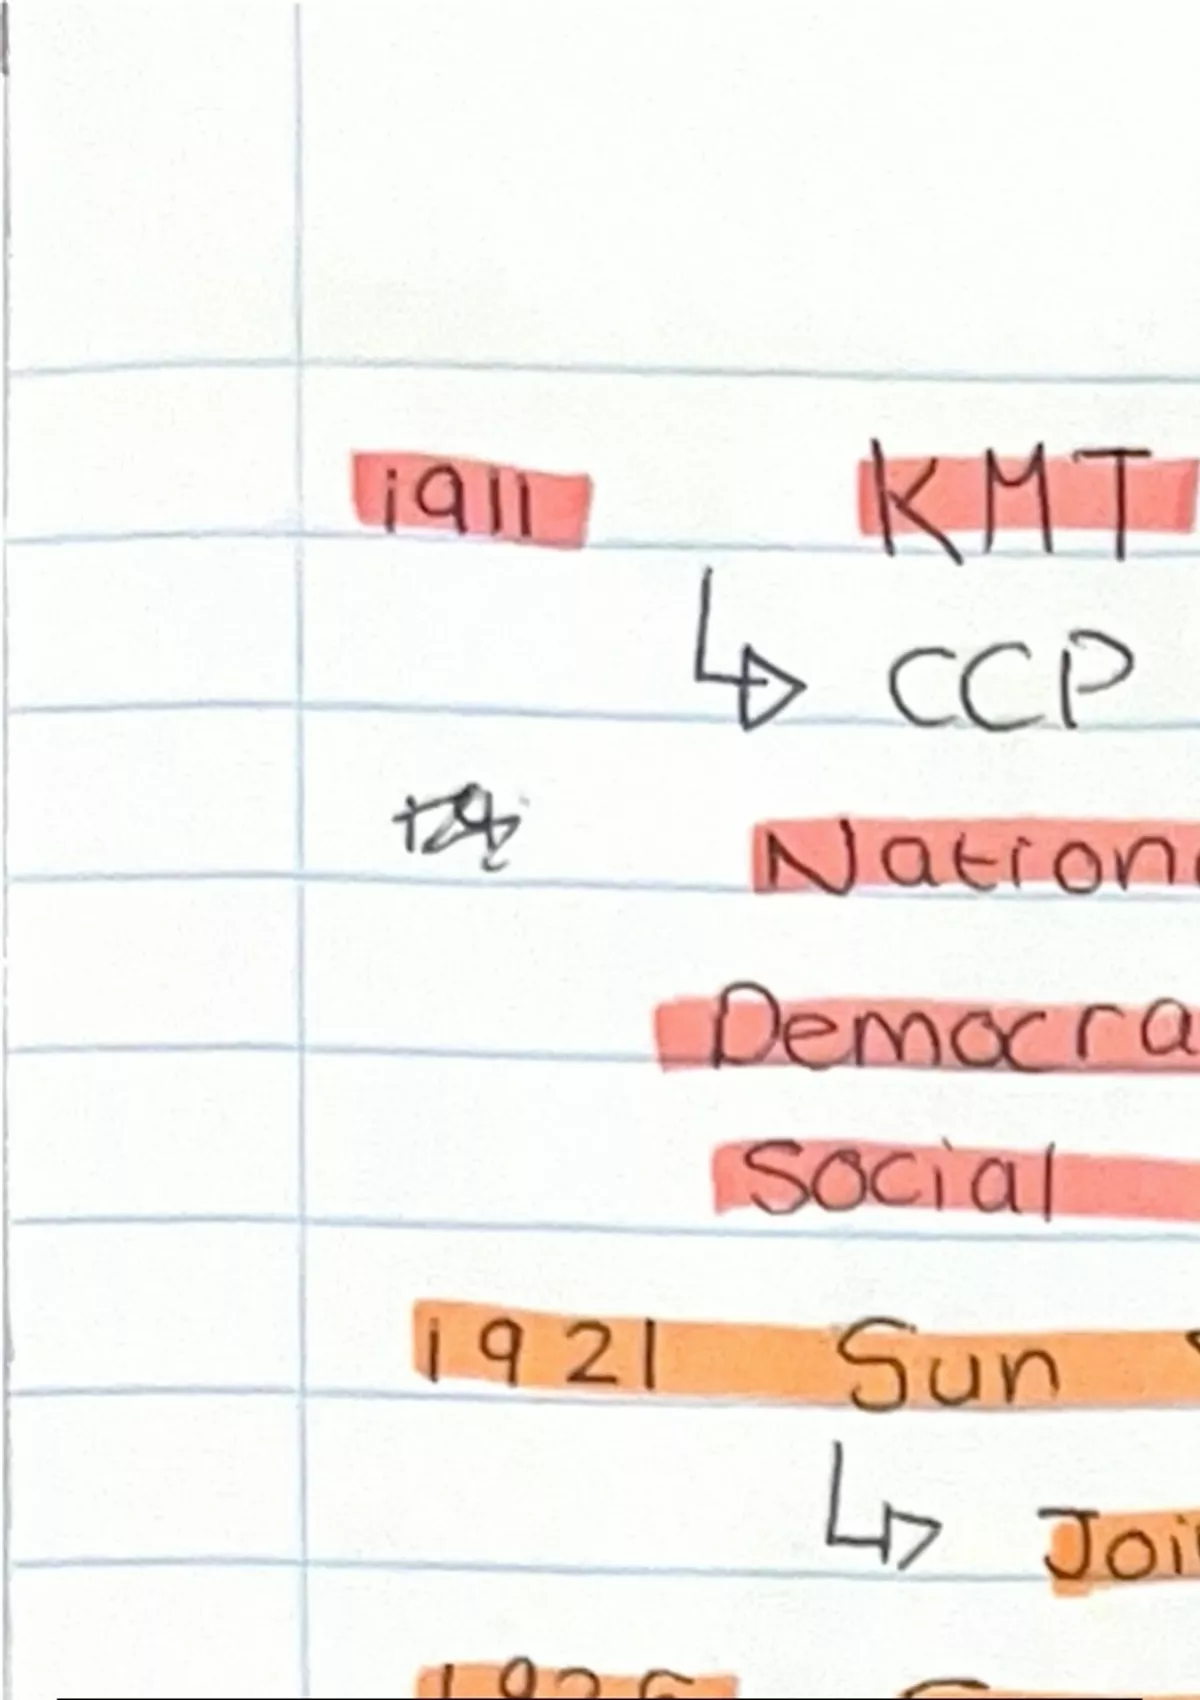 1911 KMT
↳ CCP
Nation
Democra
Social
1921 Sun
↳ Joi
1925